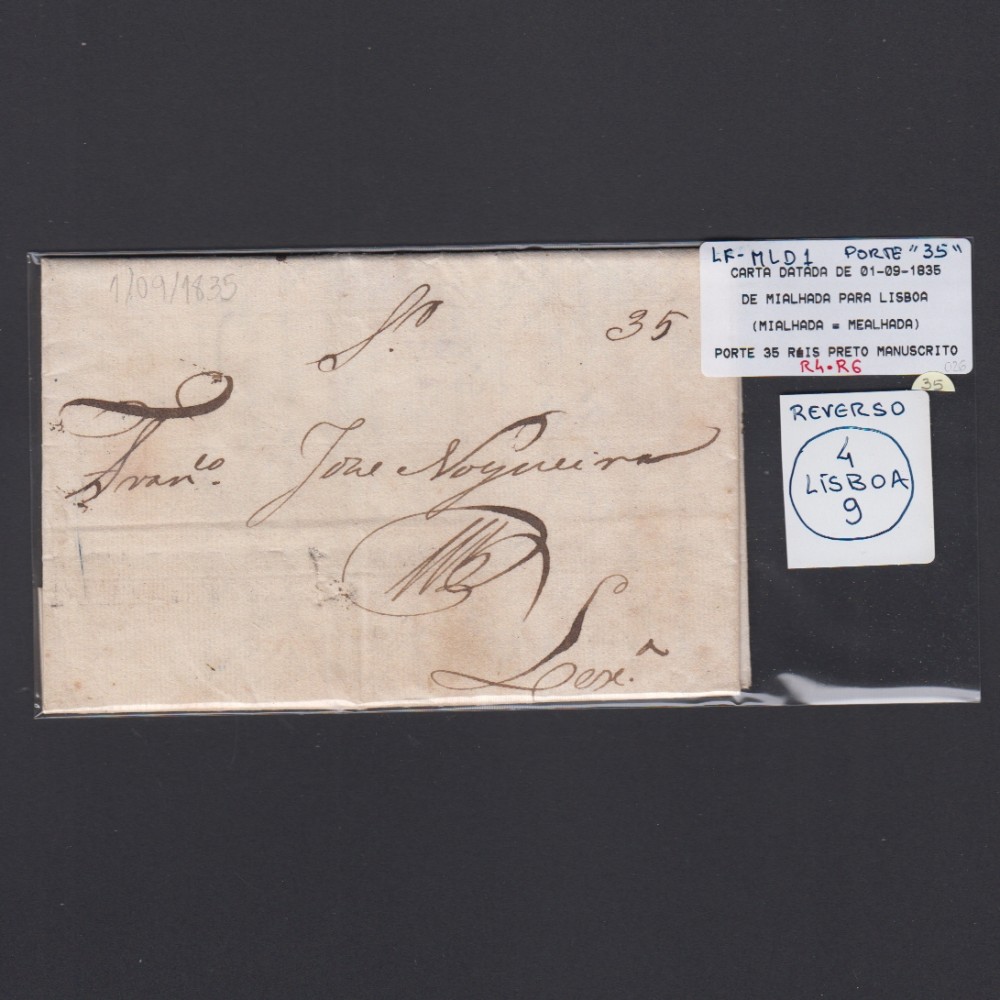 1/09/1835
Sr.
35
Franco.
Joze Nogueira
Lxa.
LF-MLD1 PORTE "35"
CARTA DATADA DE 01-09-1835
DE MIALHADA PARA LISBOA
(MIALHADA = MEALHADA)
PORTE 35 RÉIS PRETO MANUSCRITO
R4•R6
026
35
REVERSO
4
LISBOA
9